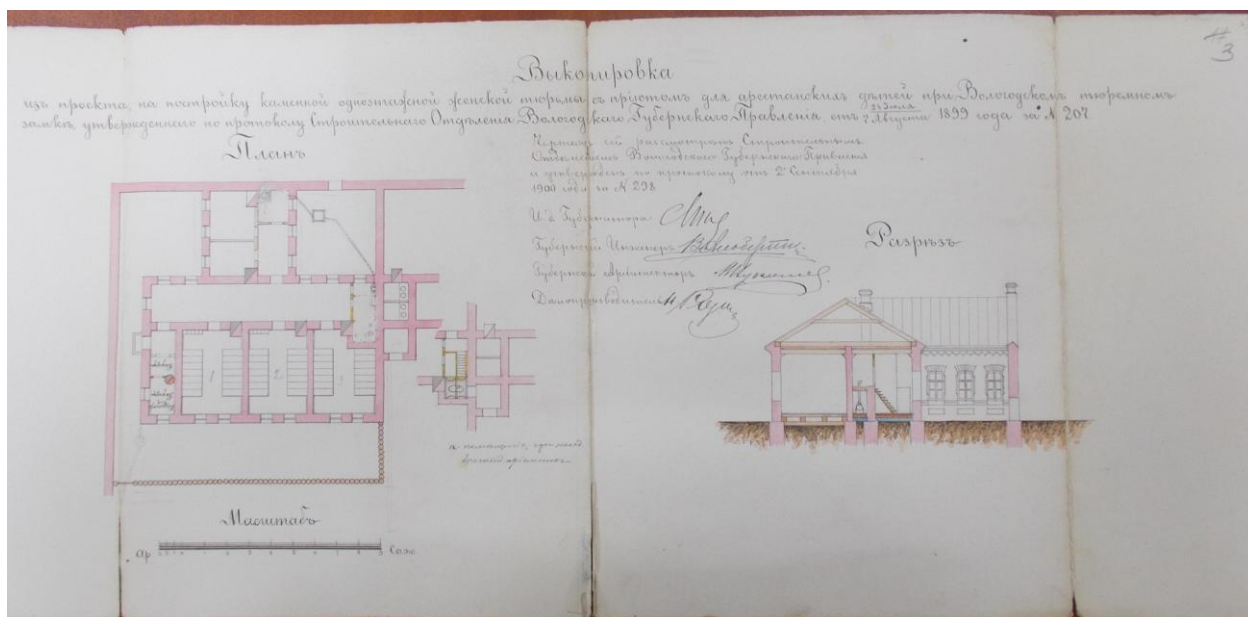 3
Выкопировка
изъ проекта, на постройку каменной одноэтажной женской тюрьмы съ прiютомъ для арестанскихъ дѣтей при Вологодскомъ тюремномъ
замкѣ, утвержденнаго по протоколу Строительнаго Отдѣленiя Вологодскаго Губернскаго Правленiя отъ 24 Iюля / 7 Августа 1899 года за № 207
Планъ
Чертежъ сей разсмотренъ Строительнымъ
Отдѣленiемъ Вологодскаго Губернскаго Правленiя
и утвержденъ по протоколу отъ 2 Сентября
1900 года за № 298
И. д. Губернатора
Губернскiй Инженеръ
Губернскiй Архитекторъ
Дѣлопроизводитель
Разрѣзъ
1
2
3
Масштабъ
Ар
Саж.